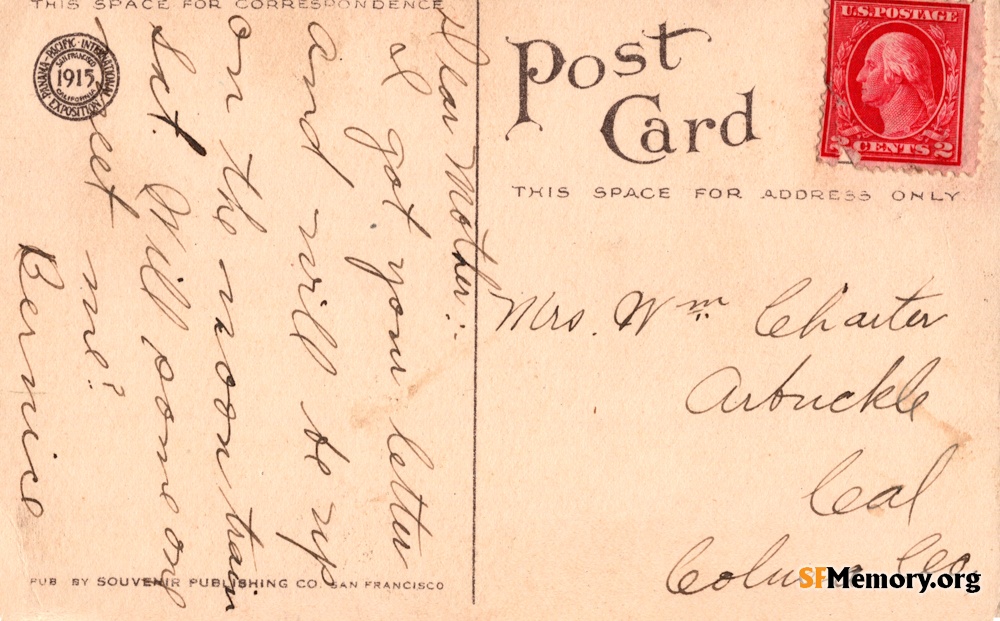 THIS SPACE FOR CORRESPONDENCE
PANAMA-PACIFIC-INTERNATIONAL EXPOSITION
SAN FRANCISCO
1915
CALIFORNIA
Dear Mother:-
I got your letter
and will be up
on the noon train
Sat. Will some one
meet me?
Bernice
PUB BY SOUVENIR PUBLISHING CO. SAN FRANCISCO
Post
Card
U.S. POSTAGE
2 CENTS 2
THIS SPACE FOR ADDRESS ONLY
Mrs. Wm Charter
Arbuckle
Cal
Colusa Co.
SFMemory.org